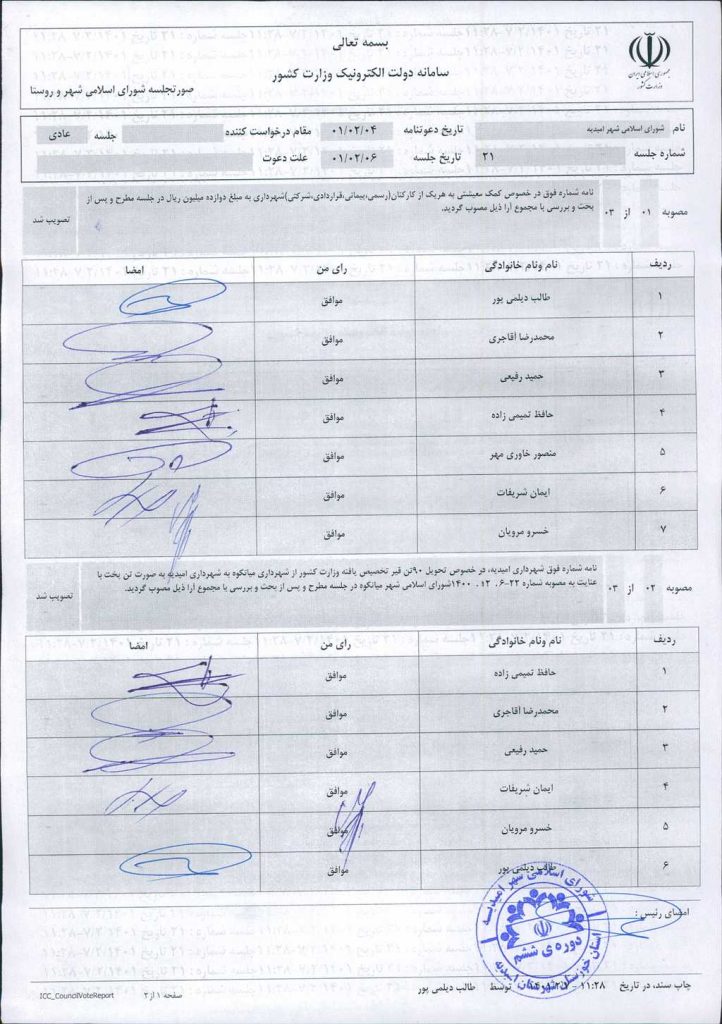 بسمه تعالی
سامانه دولت الکترونیک وزارت کشور
صورتجلسه شورای اسلامی شهر و روستا
جمهوری اسلامی ایران
وزارت کشور
نام شورای اسلامی شهر امیدیه تاریخ دعوتنامه ۰۱/۰۲/۰۴ مقام درخواست کننده جلسه عادی
شماره جلسه ۲۱ تاریخ جلسه ۰۱/۰۲/۰۶ علت دعوت
مصوبه ۰۱ از ۰۳
نامه شماره فوق در خصوص کمک معیشتی به هریک از کارکنان(رسمی،پیمانی،قراردادی،شرکتی)شهرداری به مبلغ دوازده میلیون ریال در جلسه مطرح و پس از
بحث و بررسی با مجموع آرا ذیل مصوب گردید.
تصویب شد
ردیف نام ونام خانوادگی رای من امضا
۱ طالب دیلمی پور موافق
۲ محمدرضا آقاجری موافق
۳ حمید رفیعی موافق
۴ حافظ تمیمی زاده موافق
۵ منصور خاوری مهر موافق
۶ ایمان شریفات موافق
۷ خسرو مرویان موافق
مصوبه ۰۲ از ۰۳
نامه شماره فوق شهرداری امیدیه، در خصوص تحویل ۹۰تن قیر تخصیص یافته وزارت کشور از شهرداری میانکوه به شهرداری امیدیه به صورت تن بخت با
عنایت به مصوبه شماره ۲۲-۶، ۱۲، ۱۴۰۰شورای اسلامی شهر میانکوه در جلسه مطرح و پس از بحث و بررسی با مجموع آرا ذیل مصوب گردید.
تصویب شد
ردیف نام ونام خانوادگی رای من امضا
۱ حافظ تمیمی زاده موافق
۲ محمدرضا آقاجری موافق
۳ حمید رفیعی موافق
۴ ایمان شریفات موافق
۵ خسرو مرویان موافق
۶ طالب دیلمی پور موافق
امضای رئیس :
شورای اسلامی شهر امیدیه
دوره ی ششم
استان خوزستان شهرستان امیدیه
چاپ سند، در تاریخ ۱۱:۲۸ - ۱۴۰۱/۲/۷ توسط طالب دیلمی پور
صفحه ۱ از ۲
ICC_CouncilVoteReport